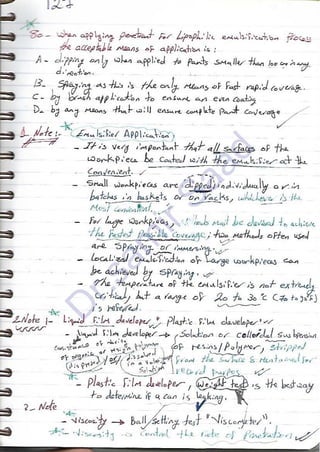 127
80 - When applying penetrant for Lipophilic emulsification process
the acceptable means of application is:
A - dipping only when applied to parts smaller than in any
direction.
B - Spraying as this is the only means of fast rapid coverage.
C - by brush application to ensure an even coating
D - by any means that will ensure complete part coverage
Note: - (Emulsifier Application)
- It is very important that all surfaces of the
workpiece be coated with the emulsifier at the
Convenient.
- Small workpieces are dipped individually or in
batches in baskets or on racks, whichever is the
most convenient.
- For large workpieces, must be devised to achieve
the fastest possible coverage; two methods often used
are spraying or immersing.
- Localized emulsification of large workpieces can
be achieved by spraying.
- The temperature of the emulsifier is not extremely
critical, but a range of 20 to 30°C (70 to 90°F)
is preferred.
2. Note :- Liquid film developer, "Plastic film developer"
- Liquid film developer → Solution or colloidal suspension
of resins/Polymer, stripped
from the surface & maintained for
record purpos
- Plastic film developer, weight test is the best way
to determine if a can is leaking.
2. Note
- Viscosity → Ball/Setting test "Viscometer"
- Viscosity → Control the rate of Penetration